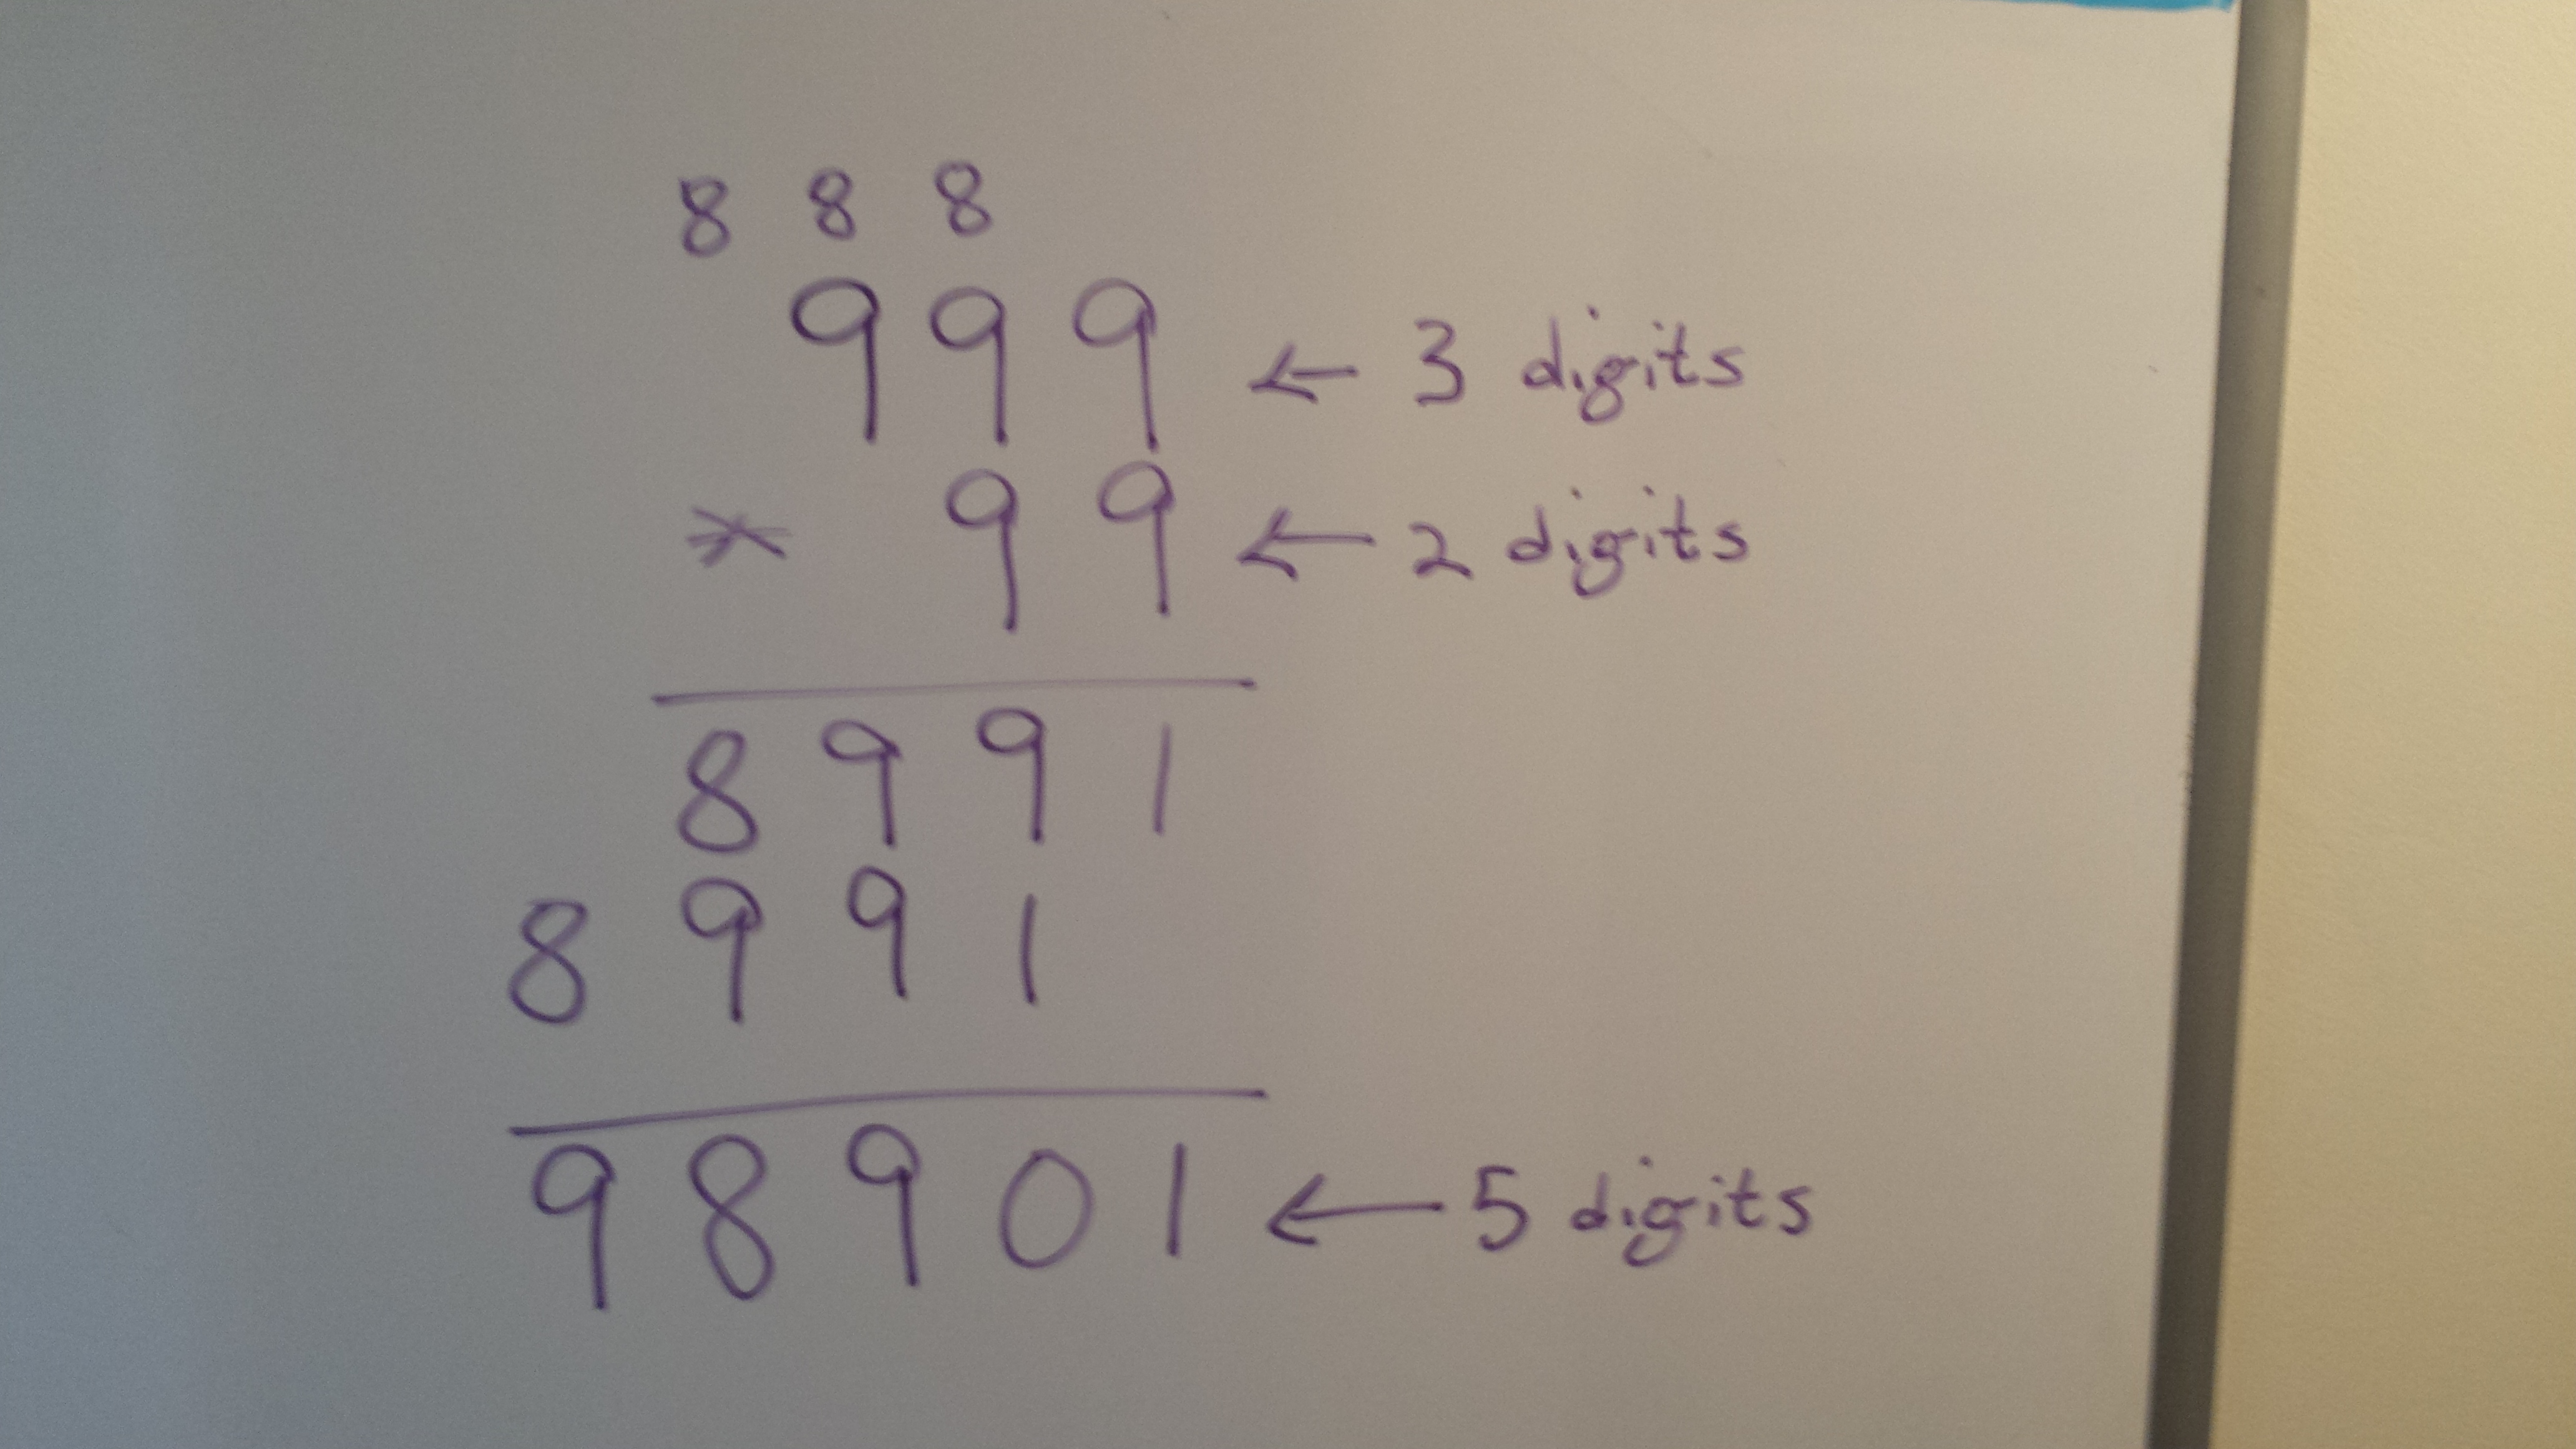 8 8 8
9 9 9 ← 3 digits
* 9 9 ← 2 digits
8 9 9 1
8 9 9 1
9 8 9 0 1 ← 5 digits